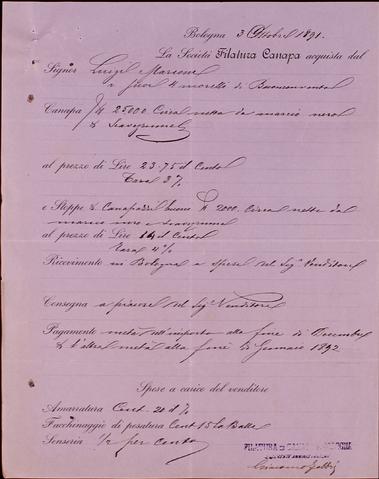 Bologna 3 Ottobre 1891.
La Società Filatura Canapa acquista dal
Signor Luigi
e
Canapa 25000 Circa netta da marcio nero
e
al prezzo di Lire 23.75 il Cento
Tara 3%
e Stoppe e Canapacci buone 2000 Circa nette da
marcio nero e
al prezzo di Lire 14 il Cento
Tara 4%
Ricevimento in Bologna a spese del Sigr Venditore
Consegna a piacere del Sigr Venditore
Pagamento metà dell'importo alla fine di Decembre
e l'altra metà alla fine di Gennaio 1892
Spese a carico del venditore
Amarratura Cent. 20 d %
Facchinaggio di pesatura Cent 15 la Balla
Senseria 1/2 per Cento
FILATURA DI CANAPA BOLOGNA